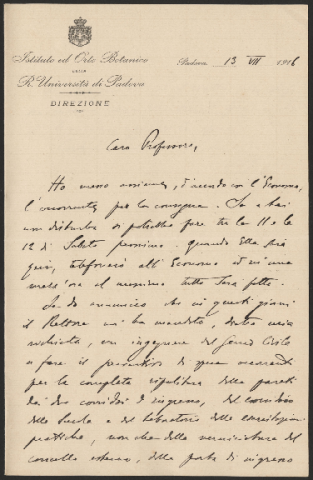 Istituto ed Orto Botanico
DELLA
R. Università di Padova
DIREZIONE
Padova, 13 VII 1916
Caro Professore,
Ho messo assieme, d'accordo con l'Economo,
l'occorrente per la consegna. Se a Lei
non disturba si potrebbe fare tra le 11 e le
12 di Sabato prossimo. quando Ella sia
qui, telefonerò all'Economo ed in una
mezz'ora al massimo tutto sarà fatto.
Le annuncio che in questi giorni
il Rettore mi ha mandato, dietro mia
richiesta, un ingegnere del Genio Civile
a fare il preventivo di spesa
per la completa ripulitura delle pareti
dei due corridoi di ingresso, del corridoio
della Scuola e del laboratorio delle esercitazioni
pratiche, non che della verniciatura del
cancello esterno, della porta di ingresso